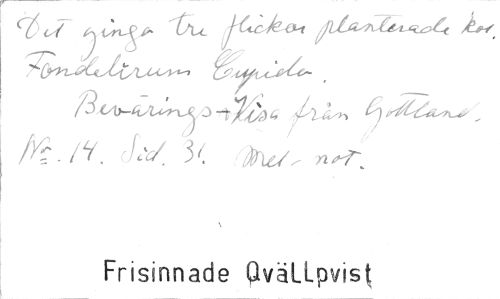 Det ginga tre flickor planterade kor.
Fondelirum Cupido.
Bevärings-Visa från Gottland.
No. 14. Sid. 31. Mel- not.
Frisinnade QväLLpvist